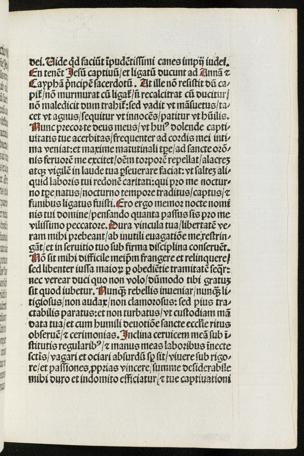 dei. Uide qd faciūt īpudētissimi canes impij iudei.
En tenēt Jesū captiuū/et ligatū ducunt ad Annā ⁊
Caypha p̄ncipē sacerdotū. At ille nō resistit dū ca-
pit᷑/nō murmurat cū ligat᷑/nō recalcitrat cū ducitur/
nō maledicit dum trahit᷑: sed vadit vt māsuetus/ta-
cet vt agnus/sequitur vt innocēs/patitur vt hūilis.
Nunc precor te deus meus/vt hui⁹ dolende capti-
uitatis tue acerbitas/frequenter ad cordis mei inti-
ma veniat: et maxime matutinali tpe/ad sancte orō-
nis feruorē me excitet/oēm torporē repellat/alacrez
atqz vigilē in laude tua pseuerare faciat: vt saltez ali-
quid laboris tui redonē caritati: qui pro me noctur-
no tpe natus/nocturno tempore traditus/captus/⁊
funibus ligatus fuisti. Ero ergo memor nocte nomi
nis tui domine/pensando quanta passus sis pro me
vilissimo peccatore. Dura vincula tua/libertatē ve-
ram mihi prebeant/ab inutili euagatiōe me restrin-
gāt/et in seruitio tuo sub firma disciplina conseruēt.
Nō sit mihi difficile meip̄m frangere et relinquere/
sed libenter iussa maioꝝ p obedientie tramitatē seqr̄:
nec verear duci quo non volo/dūmodo tibi gratus
sit quod iubetur. Nunqz rebellis inueniar/nunqz li-
tigiosus/non audax/non clamorosus: sed pius tra-
ctabilis paratus: et non turbatus/vt custodiam mā
data tua/et cum humili deuotiōe sancte ecclesie ritus
obseruē/⁊ cerimonias. Inclina ceruicem meā sub ī-
stitutis regularib⁹/⁊ manus meas laboribus īnecte
sctis/vagari et ociari absurdū sp sit/viuere sub rigo-
re/et passiones ꝓprias vincere/summe desiderabile
mihi duro et indomito efficiatur/⁊ tue captiuationi